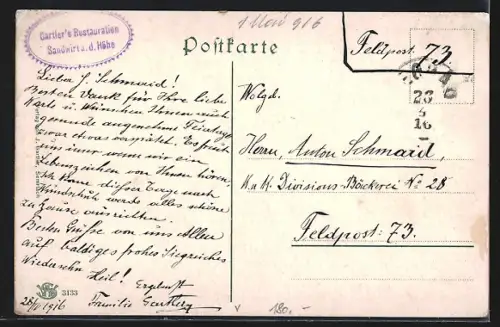 Gartler's Restauration
Sandwirt a. d. Höhe
1 Mai 916
Postkarte
Feldpost 73.
23
4
16
Lieber H. Schmaid!
Besten Dank für Ihre liebe
Karte u. Wünschen Ihnen auch
gesunde angenehme Feiertage
zwar etwas verspätet. Es freut
uns immer wenn wir ein
Lebenszeichen von Ihnen hören,
Ich komme dieser Tage nach
Windschuh werde alles schöne
zu Hause ausrichten.
Besten Grüße von uns Allen
auf baldiges frohes Siegreiches
Wiedersehn Heil! Ergebenst
Familie Gartler
28/IV 1916
3133
Wolgd.
Herrn Anton Schmaid,
K. u. K. Divisions-Bäckerei No 28
Feldpost: 73.
180.-